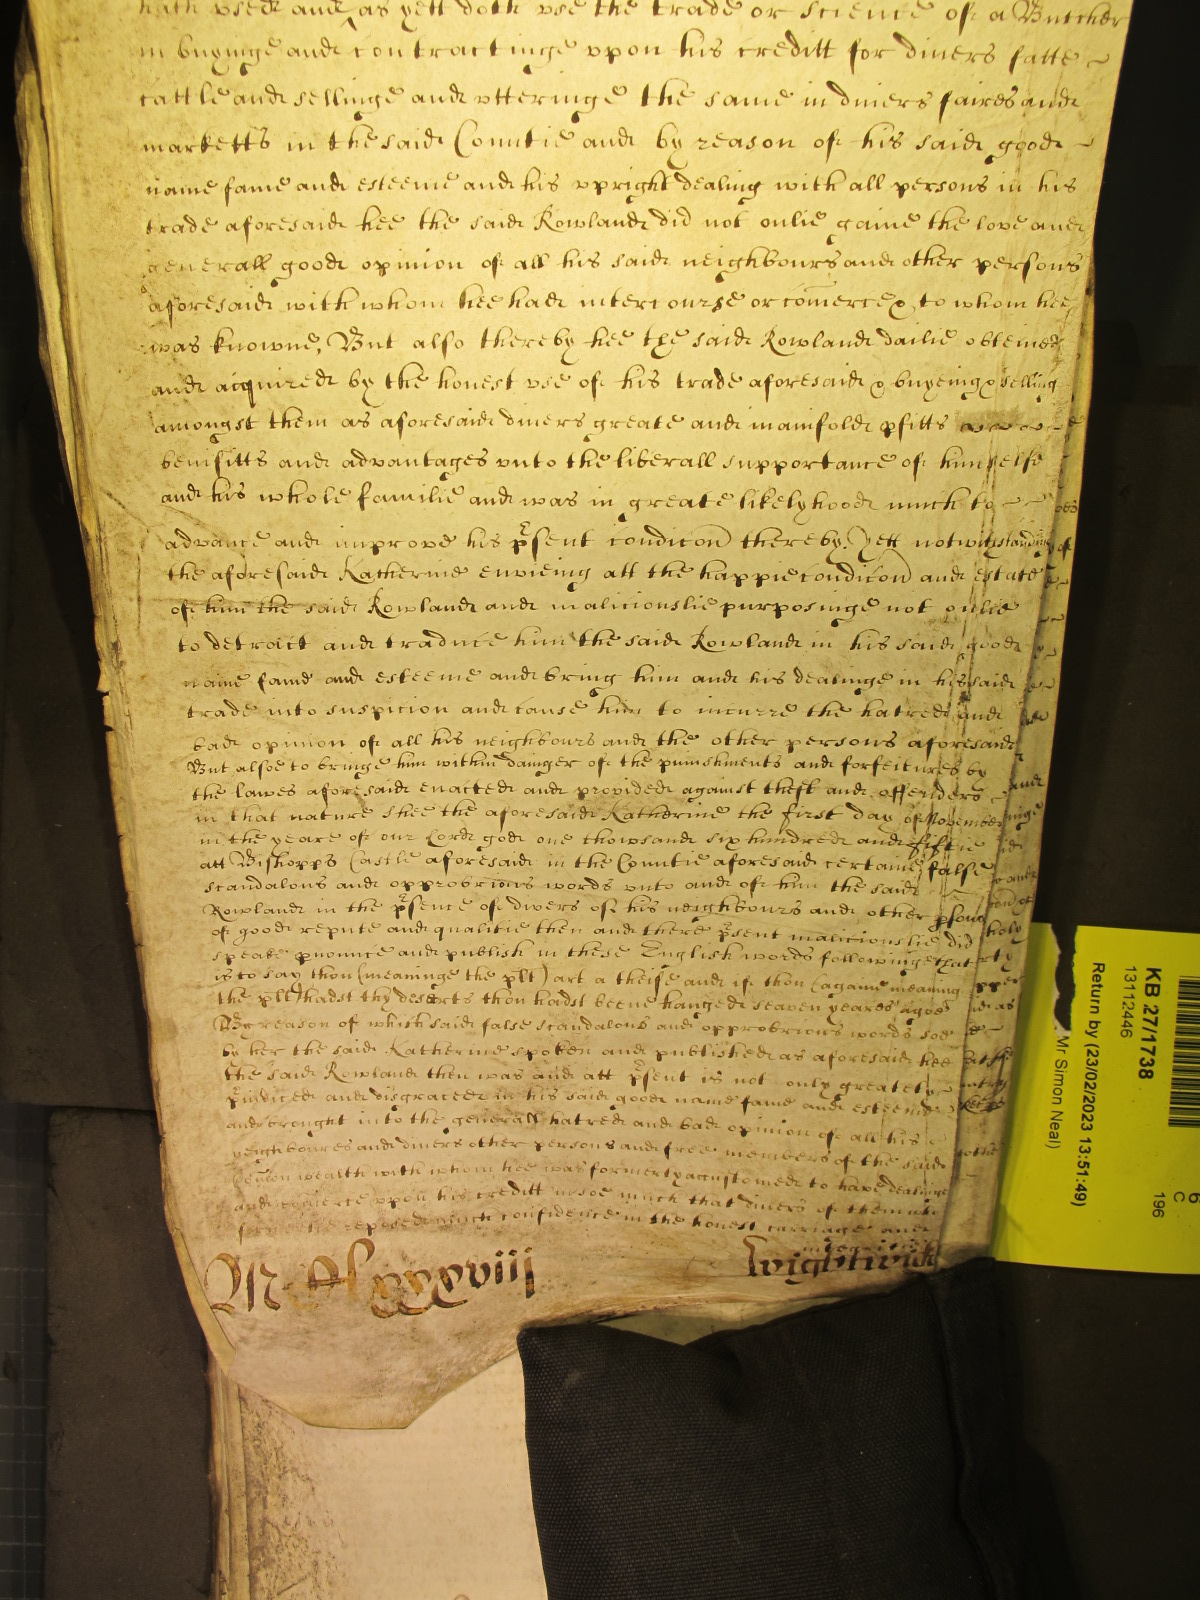 hath vsed and as yett doth vse the trade or science of a Butcher
in buyinge and contractinge vpon his creditt for divers fatte
cattle and sellinge and vtteringe the same in divers faires and
marketts in the said Countie and by reason of his said good
name fame and esteeme and his vpright dealing with all persons in his
trade aforesaid hee the said Rowland did not onlie gaine the love and
generall good opinion of all his said neighbours and other persons
aforesaid with whom hee had intercourse or comerce & to whom hee
was knowne, But also thereby hee the said Rowland dailie obteined
and acquired by the honest vse of his trade aforesaid & buyeing & selling
amongst them as aforesaid divers greate and manifold pfitts
benifitts and advantages vnto the liberall supportance of himselfe
and his whole familie and was in greate likelyhood much to
advance and improve his psent condicon thereby. Yett notwithstanding
the aforesaid Katherine envieing att the happie condicon and estate
of him the said Rowland and maliciouslie purposinge not onlie
to detract and traduce him the said Rowland in his said good
name fame and esteeme and bring him and his dealinge in his said
trade into suspicion and cause him to incurre the hatred and
bad opinion of all his neighbours and the other persons aforesaid
But alsoe to bringe him within danger of the punishments and forfeitures by
the lawes aforesaid enacted and provided against theft and offenders
in that nature shee the aforesaid Katherine the first day of November
in the yeare of our Lord god one thowsand six hundred and fiftie
att Bishopps Castle aforesaid in the Countie aforesaid certaine false
scandalous and opprobrious words vnto and of him the said
Rowland in the psence of divers of his neighbours and other psons
of good repute and qualitie then and there psent maliciouslie did
speake pnounce and publish in these English words followinge that
is to say thou (meaninge the plt) art a theife and if thou (againe meaning
the plt) hadst thy deserts thou hadst beene hanged seaven yeares agoe
By reason of which said false scandalous and opprobrious words soe
by her the said Katherine spoken and published as aforesaid hee
the said Rowland then was and att psent is not only greately
piudiced and disgraced in his said good name fame and esteeme
and brought into the generall hatred and bad opinion of all his
neighboures and divers other persons and free members of the said
Comon wealth with whom hee was formerly accustomed to have dealinge
and comerce vpon his creditt insoe much that divers of them who
formerlie reposed much confidence in the honest carriage and
M Clxxxxviij
Wightwick
KB 27/1738
13112446
Return by (23/02/2023 13:51:49)
Mr Simon Neal)
196
6
C